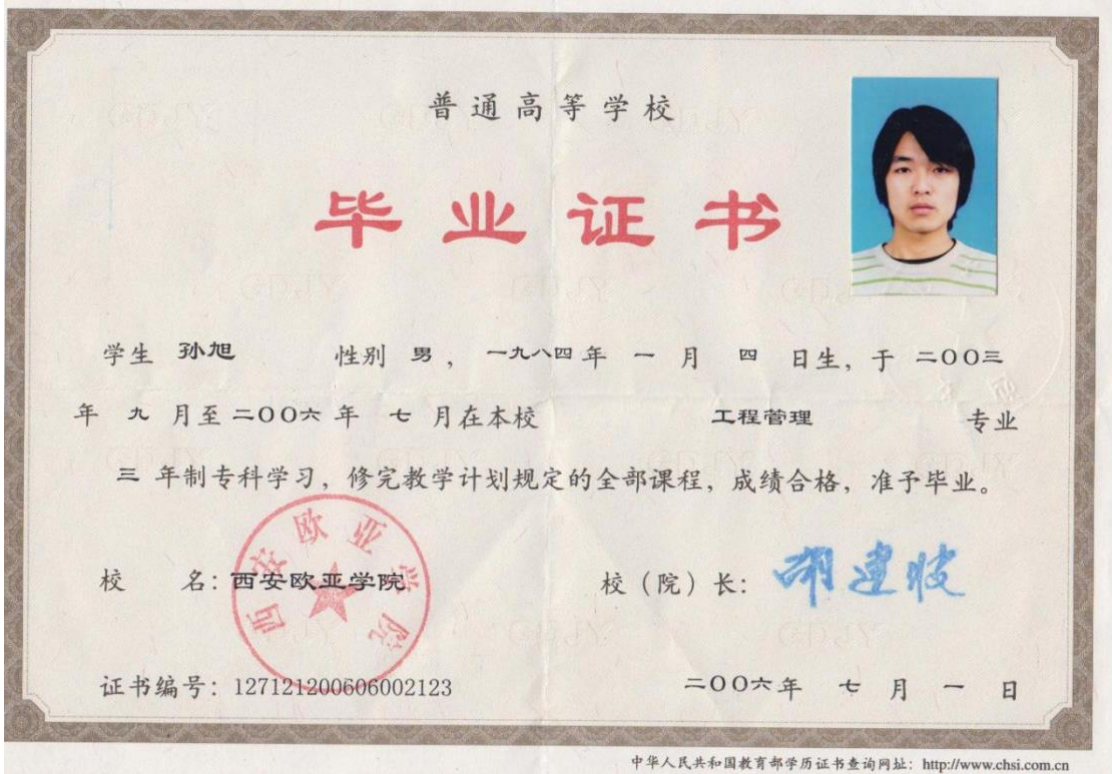 普通高等学校
毕业证书
学生 孙旭 性别 男，一九八四年 一 月 四 日生，于 二〇〇三
年 九 月至 二〇〇六 年 七 月在本校 工程管理 专业
三 年制专科学习，修完教学计划规定的全部课程，成绩合格，准予毕业。
西安欧亚学院
校 名：西安欧亚学院 校（院）长：胡建波
证书编号：127121200606002123 二〇〇六年 七 月 一 日
中华人民共和国教育部学历证书查询网址：http://www.chsi.com.cn